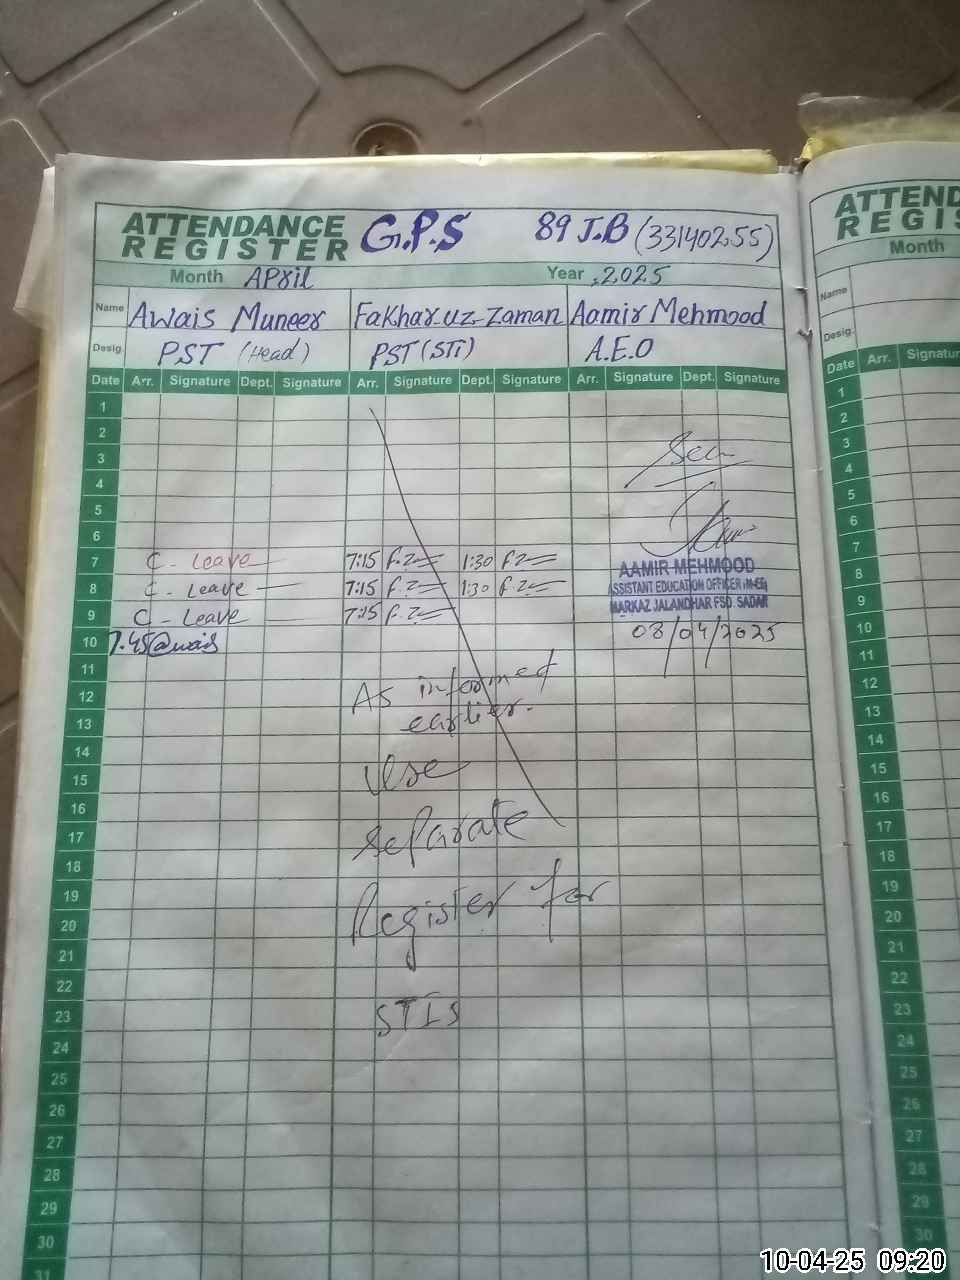 ATTENDANCE REGISTER G.P.S 89 J.B (33140255)
Month April Year 2025
Name Awais Muneer Fakhar.uz.Zaman Aamir Mehmood
Desig. PST (Head) PST (STi) A.E.O
Date Arr. Signature Dept. Signature Arr. Signature Dept. Signature Arr. Signature Dept. Signature
1
2
3 Seen
4
5
6
7 C - Leave 7:15 F.Z 1:30 F.Z
AAMIR MEHMOOD
8 C - Leave 7:15 F.Z 1:30 F.Z
ASSISTANT EDUCATION OFFICER (M-EE)
9 C - Leave 7:15 F.Z
MARKAZ JALANDHAR FSD. SADAR
10 7.45 @wais 08/04/2025
11
12 As informed
13 earlier.
14
15 Use
16
17 Separate
18
19
20 Register for
21
22
23 STIs
24
25
26
27
28
29
30
31
ATTEND
REGIS
Month
Name
Desig.
Date Arr. Signatur
1
2
3
4
5
6
7
8
9
10
11
12
13
14
15
16
17
18
19
20
21
22
23
24
25
26
27
28
29
30
10-04-25 09:20